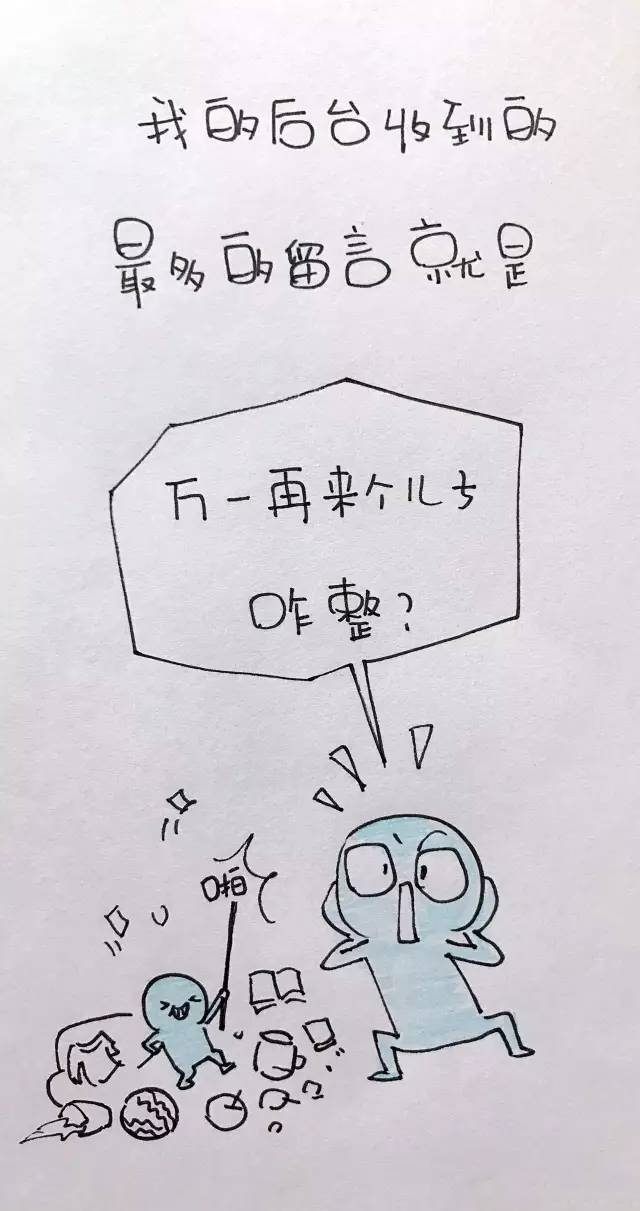 我的后台收到的
最多的留言就是
万一再来个儿子
咋整？
啪